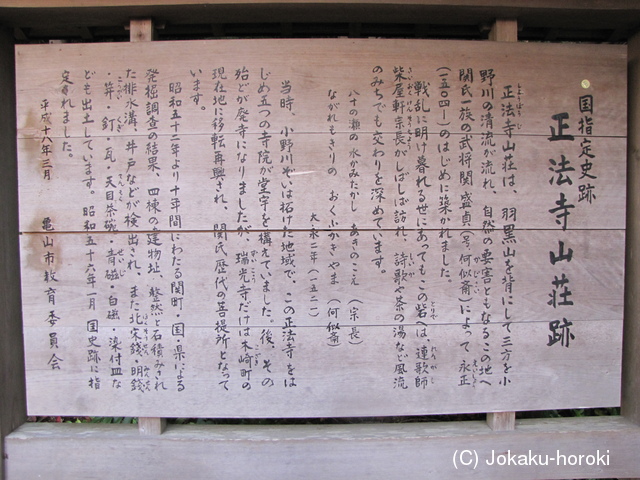 国指定史跡
正法寺山荘跡
正法寺山荘は、羽黒山を背にして三方を小
野川の清流が流れ、自然の要害ともなるこの地へ
関氏一族の武将関盛貞(号、何似斎)によって、永正
(一五〇四〜)のはじめに築かれました。
戦乱に明け暮れる世にあってもこの砦へは、連歌師
柴屋軒宗長がしばしば訪れ、詩歌や茶の湯など風流
のみちでも交わりを深めています。
八十の瀬の水かみたかし あきのこえ (宗長)
ながれもきりの おく小ふかきやま (何似斎)
大永二年(一五二二)
当時、小野川ぞいは拓けた地域で、この正法寺をは
じめ五つの寺院が堂宇を構えていました。後、その
殆どが廃寺になりましたが、瑞光寺だけは木崎町の
現在地に移転再興され、関氏歴代の菩提所となって
います。
昭和五十二年より十年間にわたる関町・国・県による
発掘調査の結果、四棟の建物址、整然と石積みされ
た排水溝、井戸などが検出され、また北宋銭・明銭
・笄・釘・瓦・天目茶碗・青磁・白磁・染付皿な
ども出土しています。昭和五十六年一月 国史跡に指
定されました。
平成十八年三月 亀山市教育委員会
(C) Jokaku-horoki